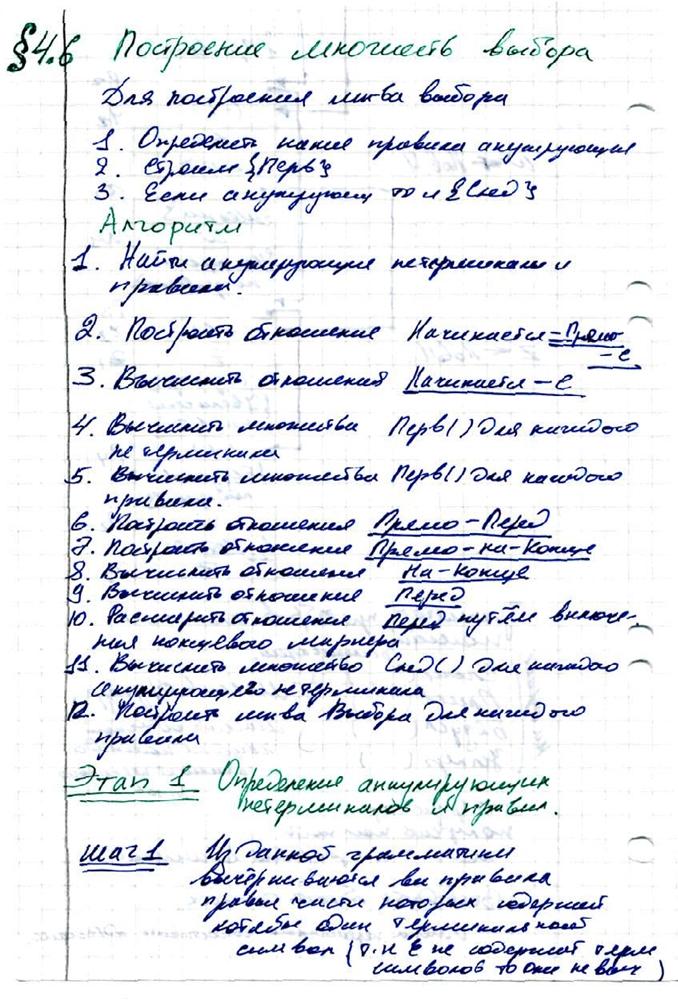 §4.6 Построение множеств выбора
Для построения мн-ва выбора
1. Определить какие правила анулирующие
2. Строим {Перв}
3. Если анулирующ то и {След}
Алгоритм
1. Найти анулирующие нетерминалы и
правила.
2. Построить отношение Начинается-Прямо
-с
3. Вычислить отношений Начинается-с
4. Вычислить множества Перв() для каждого
не терминала
5. Вычислить множества Перв() для каждого
правила.
6. Построить отношения Прямо-Перед
7. Построить отношение Прямо-на-Конце
8. Вычислить отношения На-Конце
9. Вычислить отношение Перед
10. Расширить отношение Перед путём включе-
ния концевого маркера
11. Вычислить множество След() для каждого
анулирующего нетерминала
12. Построить мн-ва Выбора для каждого
правила
Этап 1 Определение аннулирующих
нетерминалов и правил.
Шаг 1 Из данной грамматики
вычёркиваются все правила
правые части которых содержат
хотябы один терминальный
символ (т.к ε не содержит терм
символов то они не выч)